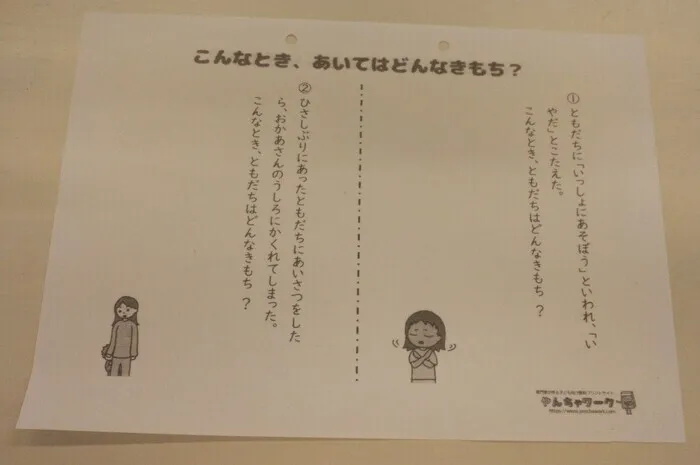 こんなとき、あいてはどんなきもち？
① ともだちに「いっしょにあそぼう」といわれ、「い
やだ」とこたえた。
こんなとき、ともだちはどんなきもち ？
② ひさしぶりにあったともだちにあいさつをした
ら、おかあさんのうしろにかくれてしまった。
こんなとき、ともだちはどんなきもち ？
やんちゃワーク